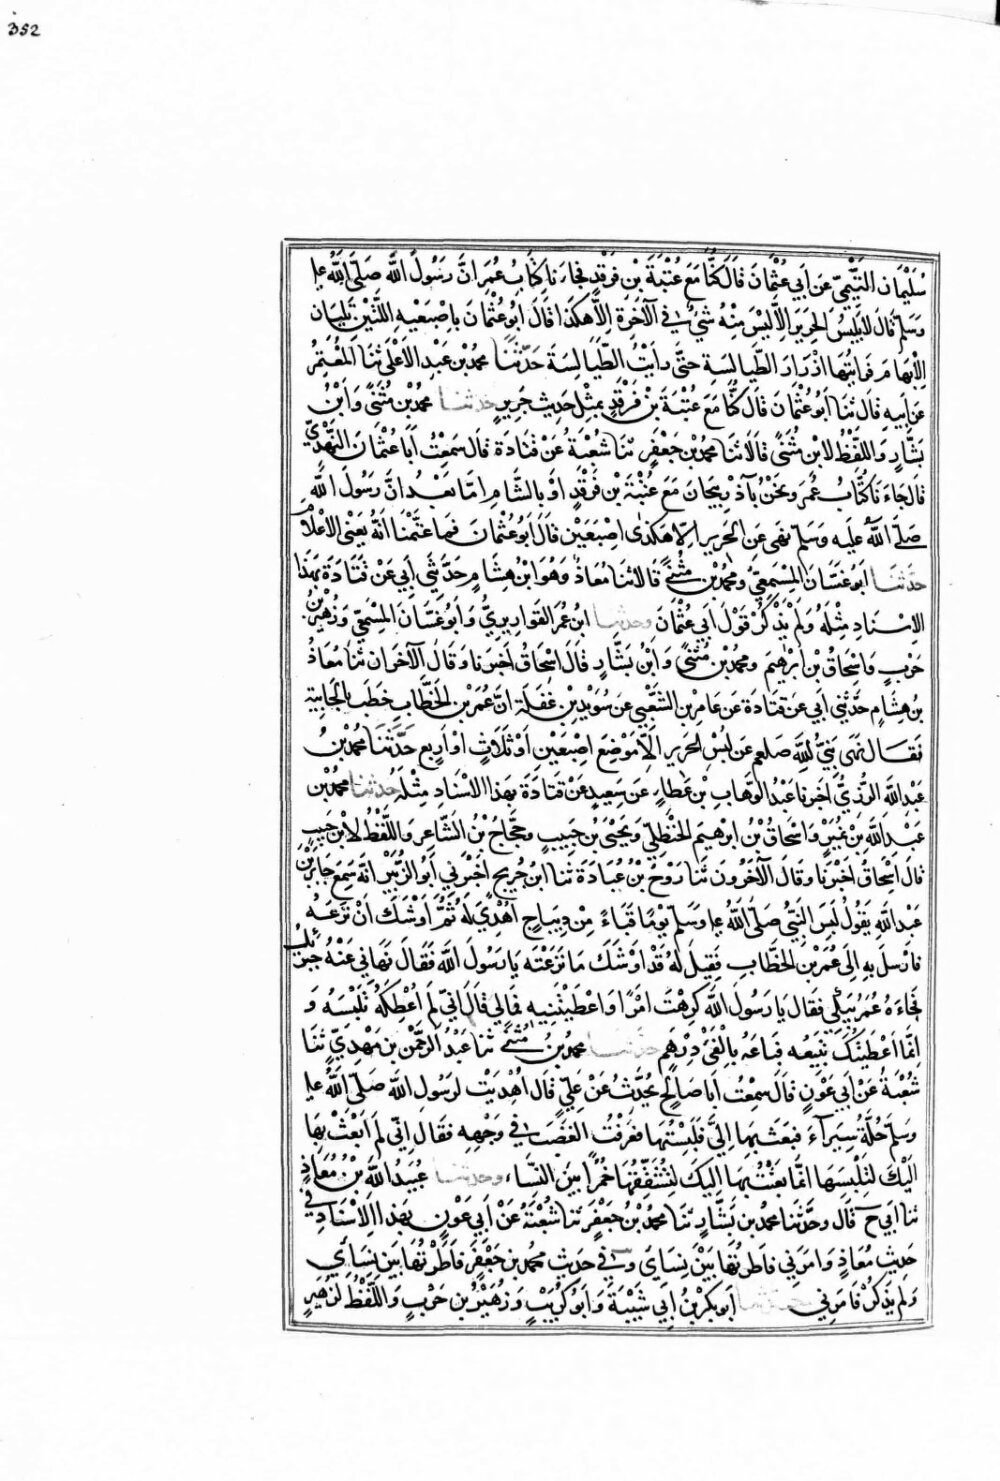 352
سُلَيْمَان التَّيْمِيّ عَن اَبي عُثْمَانَ قَالَ كُنَّا مَعَ عُتْبَةَ بْن فَرْقَدٍ فَجَاءَنَا كِتَابُ عُمَرَ اَنَّ رَسُولَ اللّه صَلّى اللّهُ علي
وَسَلّم قَالَ لَا يَلْبَسُ الحَرِيرَ اِلَّا لَيْسَ مِنْهُ شَئٌ في الآخِرَةِ اِلَّا هكَذَا قَالَ اَبُو عُثْمَانَ بِاِصْبَعَيْهِ اللَّتَيْنِ تَلِيَانِ
الْاِبْهَامَ فَرَاَيْتُهَا اَزْرَارَ الطَّيَالِسَةِ حتَّى رَاَيْتُ الطَّيَالِسَةَ حَدّثَنَا محمدُ بن عَبْدِ الاَعْلَى ثَنَا الْمُعْتَمِرُ
عَن اَبِيهِ قَالَ ثَنَا اَبُو عُثْمَانَ قَالَ كُنَّا مَعَ عُتْبَةَ بْن فَرْقَدٍ بِمِثْلِ حَدِيثِ جَرِيرٍ حَدّثنَا محمدُ بْن مُثَنًّى وَابْنُ
بَشَّارٍ وَاللَّفْظُ لابْن مُثَنًّى قَالَا ثَنَا محمدُ بْن جَعْفَرٍ ثَنَا شُعْبَةُ عَنْ قَتَادَةَ قَالَ سَمِعْتُ اَبَا عُثْمَانَ النَّهْدِيّ
قَالَ جَاءَنَا كِتَابُ عُمَرَ وَنَحْنُ بِآذَرْبِيجَانَ مَعَ عُتْبَةَ بْن فَرْقَدٍ اَوْ بِالشَّامِ اَمَّا بَعْدُ اِنَّ رَسُولَ اللّهِ
صَلّى اللّهُ عَلَيه وَسَلّم نَهَى عَن الحَرِيرِ اِلَّا هكَذَى اِصْبَعَيْنِ قَالَ اَبُو عُثْمَانَ فَمَا عَتَّمْنَا اَنَّهُ يَعْني الاَعْلَامَ
حَدّثَنَا اَبُو غَسَّانَ المِسْمَعِيُّ وَمحمدُ بْن مُثَنًّى قَالَا ثَنَا مُعَاذٌ وَهُوَ ابْنُ هِشَامٍ حَدَّثَني اَبي عَنْ قَتَادَةَ بهَذَا
الاِسْنَادِ مِثْلَهُ وَلَمْ يَذْكُرْ قَوْلَ اَبي عُثْمَانَ وحَدّثنَا ابنُ عُمَرَ القَوَارِيرِيُّ وَاَبُو غَسَّانَ المِسْمَعِيّ وَزُهَيْرُ بْنُ
حَرْبٍ وَاِسْحَاقُ بْن اِبْرهِيمَ وَمحمدُ بْن مُثَنًّى وَابْنُ بَشَّارٍ قَالَ اِسْحَاقُ اَخْبَرَنَا وَقَالَ الآخَرانِ ثَنَا مُعَاذُ
بْنُ هِشَامٍ حَدَّثَني اَبي عَن قَتَادَةَ عَن عَامِرٍ بْن الشَّعْبِيّ عَن سُوَيْدِ بْن غَفَلَةَ اَنَّ عُمَرَ بْن الخَطَّابِ خَطَبَ بِالجَابِيَةِ
فَقَالَ نَهَى نَبيُّ اللّه صلعم عَن لُبْسِ الحَرِيرِ اِلَّا مَوْضِعَ اِصْبَعَيْنِ اَوْ ثَلَاثٍ اَوْ اَرْبَعٍ حَدّثَنَا محمدُ بْنُ
عَبْدِ اللّه الرُزِّيُّ اَخْبَرَنَا عَبْدُ الوَهَّابِ بْن عَطَاءٍ عَن سَعِيدٍ عَنْ قَتَادَةَ بهَذَا الاِسْنَادِ مِثْلَهُ حَدّثنَا محمدُ بْن
عَبْدِ اللّهِ بْن نُمَيْرٍ وَاِسْحَاقُ بْن اِبْرهِيمَ الحَنْظَلِيّ وَيَحْيَى بْن حَبِيبٍ وَحَجَّاجُ بْنُ الشَّاعِرِ وَاللَّفْظُ لابْن حَبِيبٍ
قَالَ اِسْحَاقُ اَخْبَرَنَا وَقَالَ الآخَرُونَ ثَنَا رَوْحُ بْن عُبَادَةَ ثَنَا ابنُ جُرَيجٍ اَخْبَرَني اَبُو الزُّبَيْرِ اَنَّهُ سَمِعَ جَابِرَ بْنَ
عَبْدِ اللّهِ يَقُولُ لَبِسَ النَّبيُّ صَلّى اللّهُ علي وَسَلّم يَوْمًا قَبَاءً مِنْ دِيبَاجٍ اُهْدِيَ لَهُ ثُمَّ اَوْشَكَ اَنْ نَزَعَهُ
فَاَرْسَلَ بِهِ اِلَى عُمَرَ بْن الخَطَّابِ فَقِيلَ لَهُ قَدْ اَوْشَكَ مَا نَزَعْتَهُ يَا رَسُولَ اللّه فَقَالَ نَهَاني عَنْهُ جِبْرَئيلُ
فَجَاءَهُ عُمَرُ يَبْكِي فَقَالَ يَا رَسُولَ اللّه كَرِهْتَ اَمْرًا وَاَعْطَيْتَنِيهِ فَمَالي قَالَ اِنّي لَمْ اُعْطِكَهُ تَلْبَسُهُ وَ
اِنَّمَا اَعْطَيْتُكَ تَبِيعُه فَبَاعَهُ بِاَلْفَيْ دِرْهَمٍ حَدّثنَا محمدُ بنُ مُثَنًّى ثَنَا عَبْدُ الرَّحْمنِ بن مَهْدِيٍّ ثَنَا
شُعْبَةُ عَنْ اَبي عَوْنٍ قَالَ سَمِعْتُ اَبَا صَالِحٍ يُحَدِّثُ عَنْ عَلِيٍّ قَالَ اُهْدِيَتْ لِرَسُولِ اللّه صَلّى اللّهُ علي
وَسَلّم حُلَّةُ سِيَرَاءَ فَبَعَثَ بِهَا اِلَيَّ فَلَبِسْتُهَا فَعَرَفْتُ الغَضَبَ في وَجْهِهِ فَقَالَ اِنّي لَمْ اَبْعَثْ بِهَا
اِلَيْكَ لِتَلْبَسَهَا اِنَّمَا بَعَثْتُ بِهَا اِلَيكَ لِتُشَقِّقَهَا خُمُرًا بَيْنَ النِّسَاءِ وحَدّثنَا عُبَيْدُ اللّهِ بْنُ مُعَاذٍ
ثَنَا اَبي ح قَالَ وَحَدّثَنَا محمدُ بن بَشَّارٍ ثَنَا محمدُ بْن جَعْفَرٍ ثَنَا شُعْبَةُ عَنْ اَبي عَوْنٍ بهَذَا الاِسْنَادِ في
حَدِيثِ مُعَاذٍ وَاَمَرَني فَاَطَرْتُهَا بَيْنَ نِسَاي وَفي حَدِيثِ محمدِ بن جَعْفَرٍ فَاَطَرْتُهَا بَينَ نِسَايَ
وَلَم يَذْكُرْ فَاَمَرَني حَدّثنَا اَبُو بَكرِ بْنُ اَبي شَيْبَةَ وَاَبُو كُرَيْبٍ وَزُهَيْرُ بْن حَرْبٍ وَاللَّفْظُ لِزُهَيْرٍ